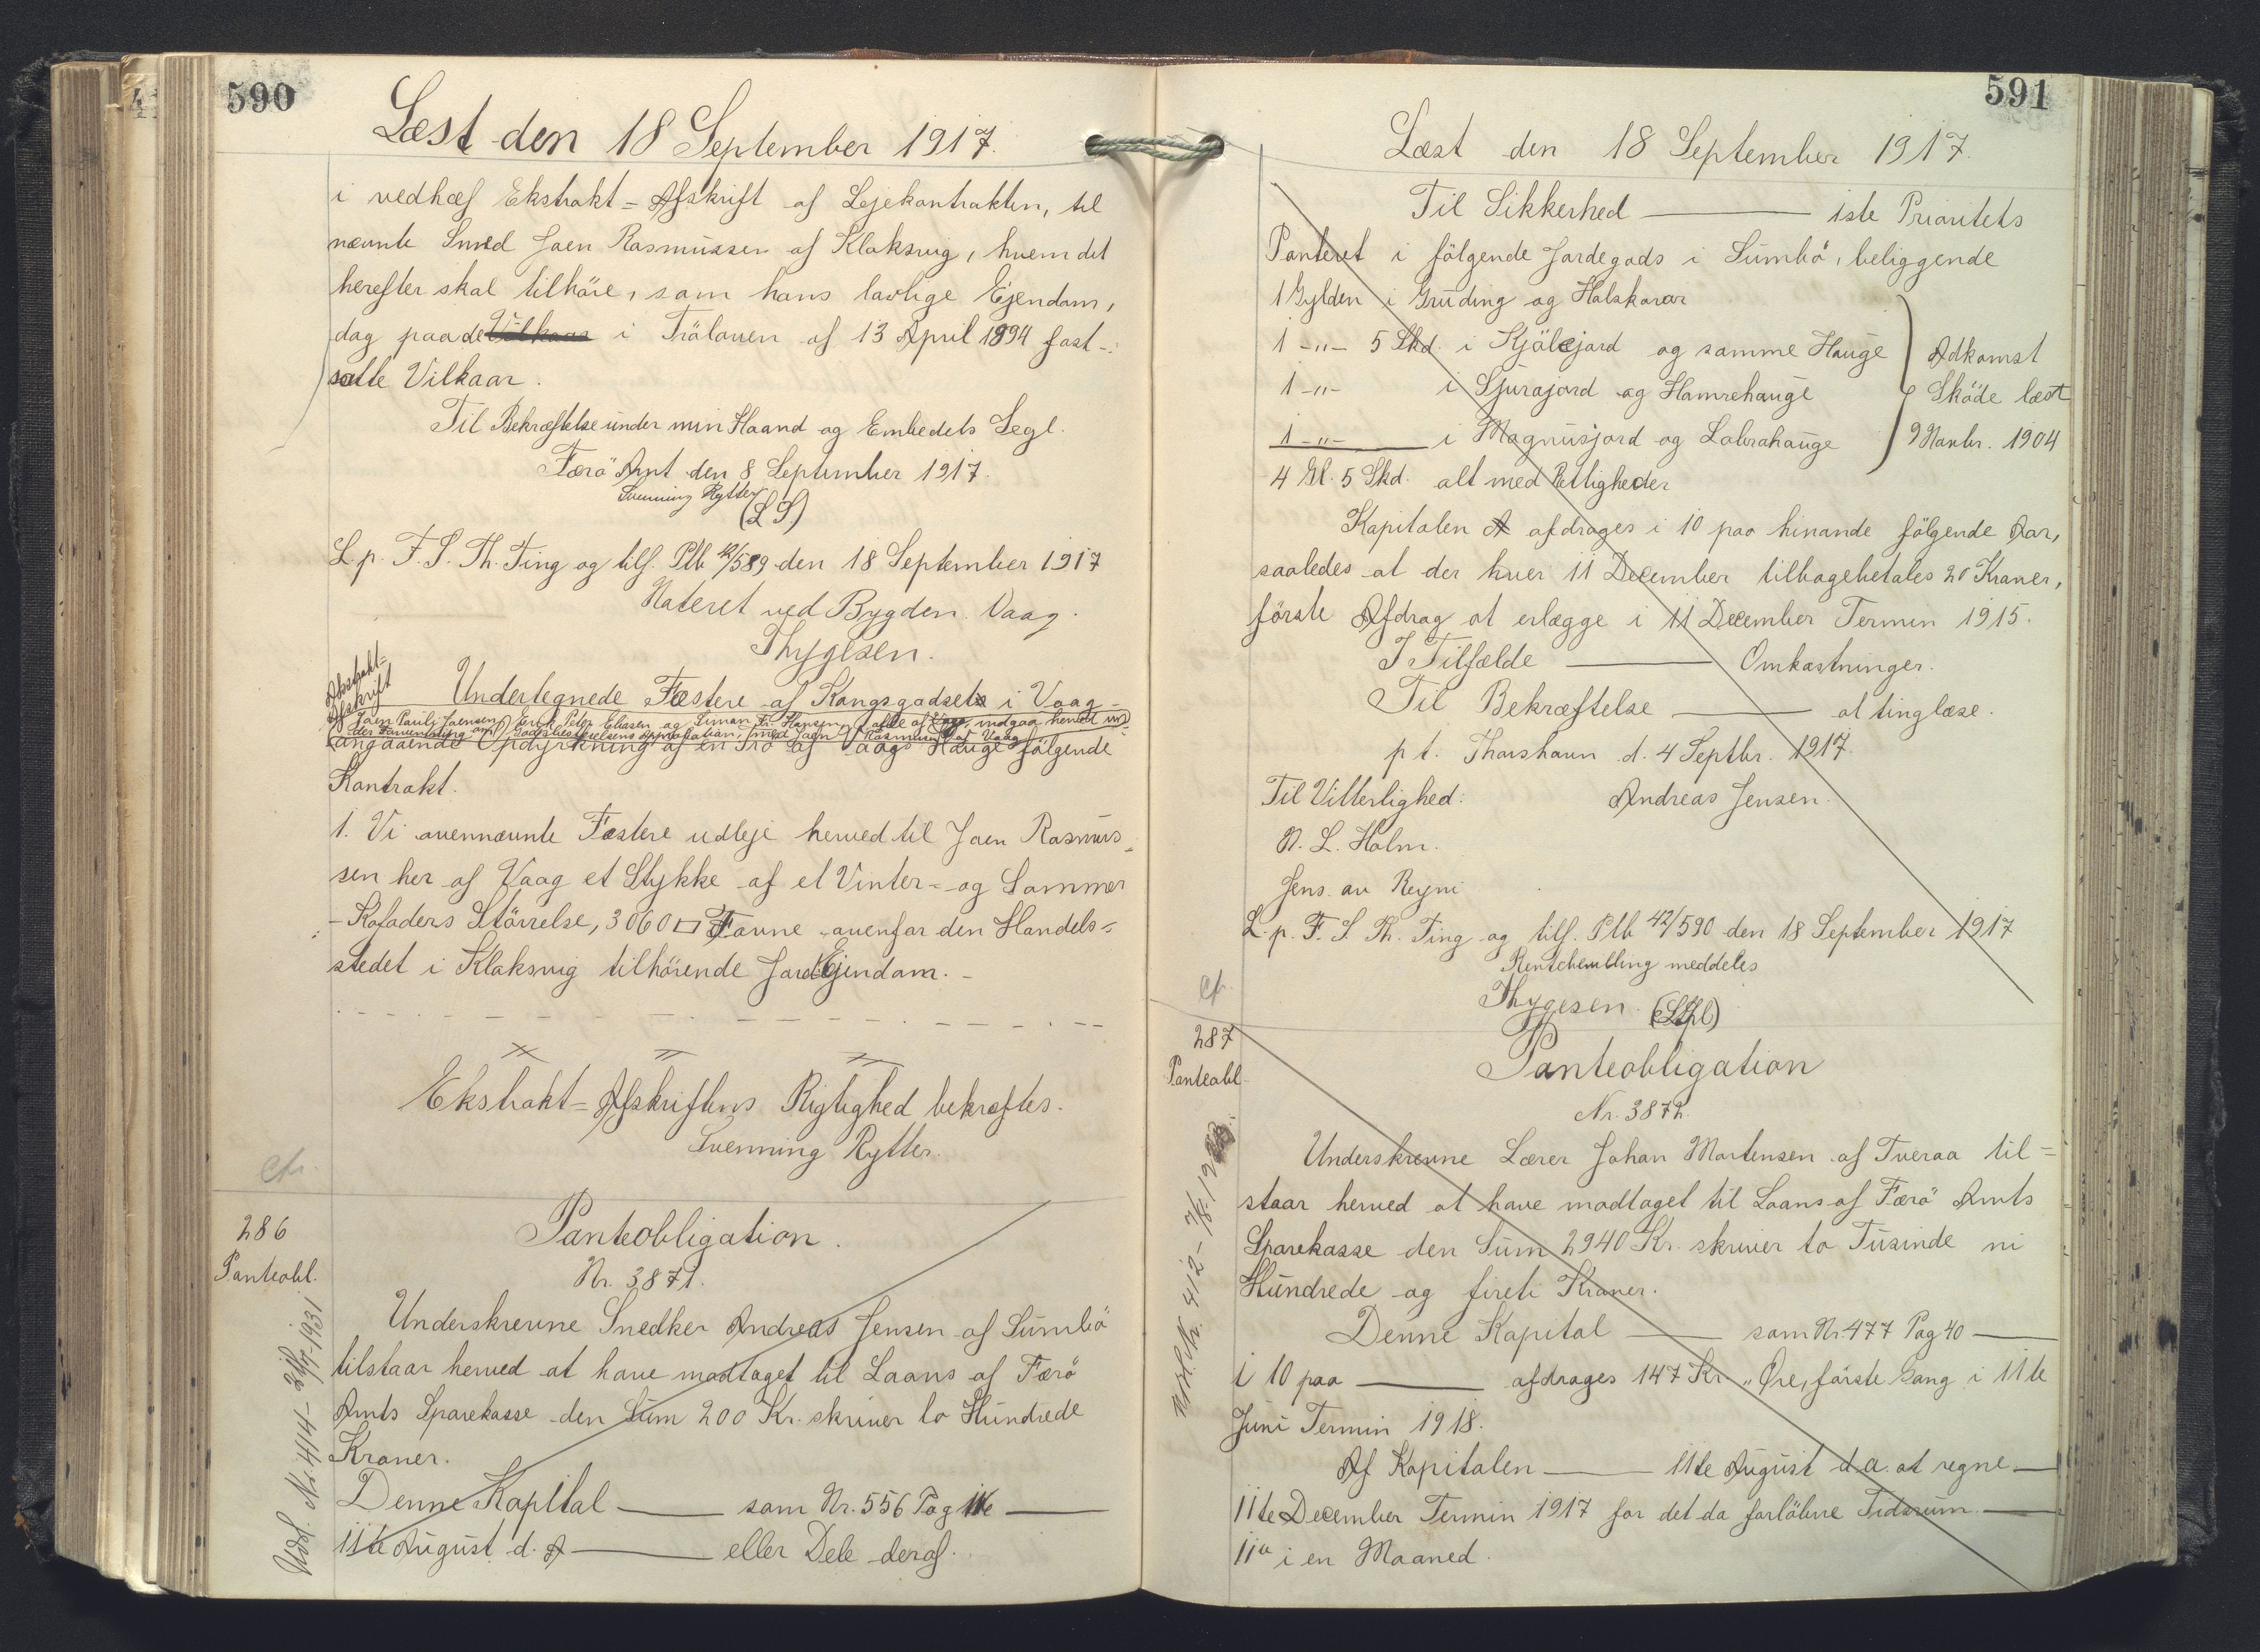 590
Læst den 18 September 1917.
i vedhæf Ekstrakt=Afskrift af Lejekontrakten, til
nævnte Smed Joen Rasmussen af Klaksvig, hvem det
herefter skal tilhöre, som hans lovlige Ejendom,
dog paa de Vilkaar i Trälouen af 13 April 1894 fast-
satte Vilkaar.
Til Bekræftelse under min Haand og Embedets Segl.
Færö Amt den 8 September 1917.
Svenning Rytter
(L S.)
L. p. F. S. Th. Ting og tilf. Plb 42/589 den 18 September 1917
Noteret ved Bygden Vaag.
Thygesen.
Ekstrakt=
Afskrift
Undertegnede Fæstere af Kongsgodset i Vaag
Joen Pauli Joensen, Erik Peter Eliassen og Simun Fr. Hansen, alle af Vaag, indgaa herved un-
der Forventning om Godsbestyrelsens Approbation, med Joen Rasmussen af Vaag
angaaende Opdyrkning af en Trö af Vaags Hauge fölgende
Kontrakt.
1. Vi ovennævnte Fæstere udleje herved til Joen Rasmus-
sen her af Vaag et Stykke af et Vinter- og Sommer
-Kofoders Störrelse, 3060 □ Favne ovenfor den Handels-
stedet i Klaksvig tilhörende Jord Ejendom.
Ekstrakt=Afskriftens Rigtighed bekræftes.
Svenning Rytter.
cfr.
286
Panteobl.
Udsl. Nr. 414-
1931
Panteobligation.
Nr. 3871.
Underskrevne Snedker Andreas Jensen af Sumbö
tilstaar herved at have modtaget til Laans af Færö
Amts Sparekasse den Sum 200 Kr. skriver to Hundrede
Kroner.
Denne Kapital ——— som Nr. 556 Pag 11te ———
11te August d. A ——— eller Dele deraf.
591
Læst den 18 September 1917.
Til Sikkerhed ——— 1ste Prioritets
Panteret i fölgende Jordegods i Sumbö, beliggende
1 Gylden i Gruding og Halskorar
1 -"- 5 Skd. i Kjälejord og samme Hauge
1 -"- i Sjurajord og Hamrehauge
1 -"- i Magnusjord og Labrahauge
Adkomst
Sköde læst
9 Novbr. 1904
4 Gl. 5 Skd. alt med Rettigheder
Kapitalen afdrages i 10 paa hinande fölgende Aar,
saaledes at der hver 11 December tilbagebetales 20 Kroner,
förste Afdrag at erlægge i 11 December Termin 1915.
I Tilfælde ——— Omkostninger.
Til Bekræftelse ——— at tinglæse.
p t. Thorshavn d. 4 Septbr. 1917.
Til Vitterlighed: Andreas Jensen.
N. L. Holm.
Jens av Reyni
L. p. F. S. Th. Ting og tilf. Plb 42/590 den 18 September 1917
meddeles
Thygesen.
cfr.
287
Panteobl.
Udsl. Nr. 412-
Panteobligation
Nr. 3872.
Underskrevne Lærer Johan Mortensen af Tveraa til=
staar herved at have modtaget til Laans af Færö Amts
Sparekasse den Sum 2940 Kr. skriver to Tusinde ni
Hundrede og fireti Kroner.
Denne Kapital ——— som Nr. 477 Pag 40 ———
i 10 paa ——— afdrages 147 Kr. " Øre, förste Gang i 11te
Juni Termin 1918.
Af Kapitalen ——— 11te August d. a. at regne ———
11te December Termin 1917 for det da forlöbne Tidsrum. ———
i en Maaned.